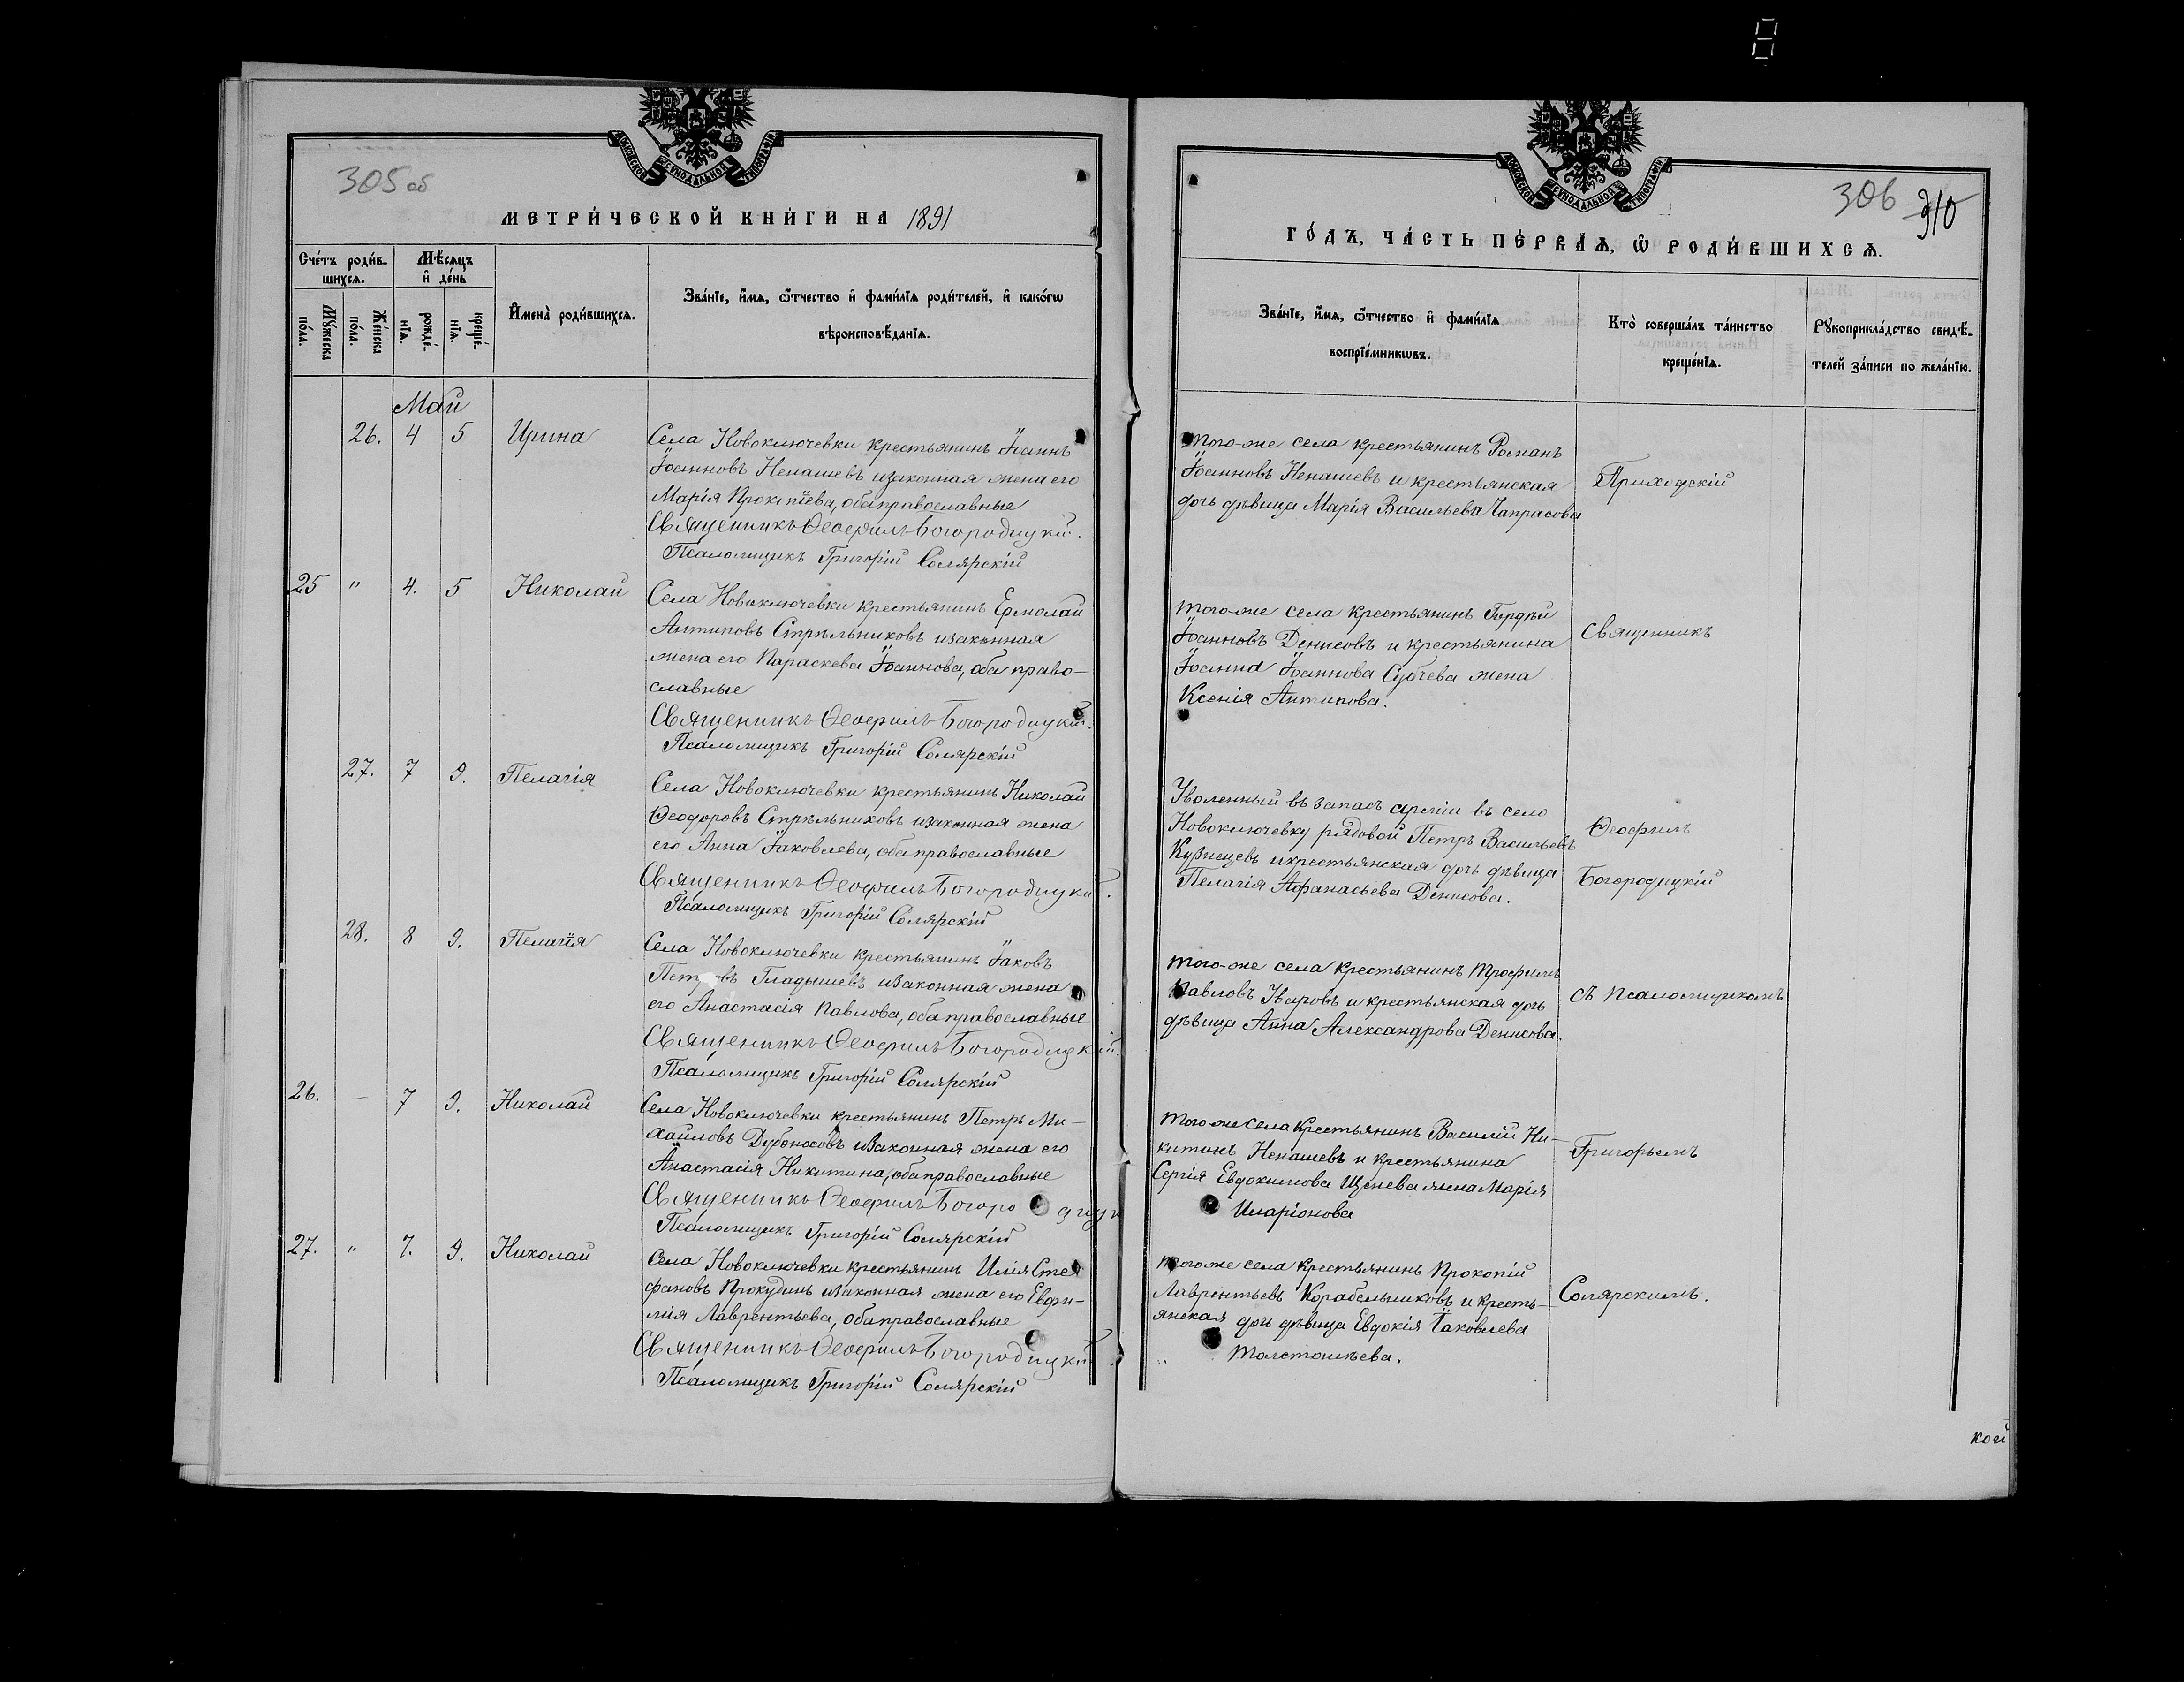 МОСКОВСКОЙ СѴНОДАЛЬНОЙ ТИПОГРАФІИ
305 об
МЕТРИ́ЧЕСКОЙ КНИ́ГИ НА 1891
Сче́тъ роди́в-
шихсѧ.
Мѣ́сѧцъ
и҆ де́нь
И҆мена̀ роди́вшихсѧ.
Зва́нїе, и҆́мѧ, ѻ҆́тчество и҆ фами́лїѧ роди́телей, и҆ како́гѡ
вѣроисповѣ́данїѧ.
Мꙋ́жеска
по́ла.
Же́нска
по́ла.
рожде́-
нїѧ.
креще́-
нїѧ.
Май
26. 4 5 Ирина
Села Новоключевки крестьянинъ Іоаннъ
Іоанновъ Ненашевъ и законная жена его
Марія Прокопіева, оба православные
Священникъ Ѳеофилъ Богородицкій.
Псаломщикъ Григорій Солярскій
25 " 4. 5 Николай
Села Новоключевки крестьянинъ Ермолай
Антиповъ Стрѣльниковъ и законная
жена его Параскева Іоаннова, оба право-
славные
Священникъ Ѳеофилъ Богородицкій.
Псаломщикъ Григорій Солярскій
27. 7 9. Пелагія
Села Новоключевки крестьянинъ Николай
Ѳеодоровъ Стрѣльниковъ и законная жена
его Анна Іаковлева, оба православные
Священникъ Ѳеофилъ Богородицкій.
Псаломщикъ Григорій Солярскій
28. 8 9. Пелагія
Села Новоключевки крестьянинъ Іаковъ
Петровъ Гладышевъ и законная жена
его Анастасія Павлова, оба православные
Священникъ Ѳеофилъ Богородицкій.
Псаломщикъ Григорій Солярскій
26. — 7 9. Николай
Села Новоключевки крестьянинъ Петръ Ми-
хайловъ Дубоносовъ и законная жена его
Анастасія Никитина, оба православные
Священникъ Ѳеофилъ Богородицк
Псаломщикъ Григорій Солярскій
27. " 7. 9. Николай
Села Новоключевки крестьянинъ Илія Сте
фановъ Прокудинъ и законная жена его Евфи-
мія Лаврентьева, оба православные
Священникъ Ѳеофилъ Богородицкій.
Псаломщикъ Григорій Солярскій
МОСКОВСКОЙ СѴНОДАЛЬНОЙ ТИПОГРАФІИ
306 310
ГО́ДЪ, ЧА́СТЬ ПЕ́РВАѦ, Ѡ҆ РОДИ́ВШИХСѦ.
Зва́нїе, и҆́мѧ, ѻ҆́тчество и҆ фами́лїѧ
воспрїе́мникѡвъ.
Кто̀ соверша́лъ та́инство
креще́нїѧ.
Рꙋкоприкла́дство свидѣ́-
телей за́писи по жела́нїю.
того-же села крестьянинъ Романъ
Іоанновъ Ненашевъ и крестьянская
дочь дѣвица Марія Васильева
Приходскій
того-же села крестьянинъ Гордѣй
Іоанновъ Денисовъ и крестьянина
Іоанна Іоаннова жена
Ксенія Антипова.
Священникъ
Уволенный въ запасъ арміи въ село
Новоключевку рядовой Петръ Васильевъ
Кузнецевъ и крестьянская дочь дѣвица
Пелагія Афанасьева Денисова.
Ѳеофилъ
Богородицкій
того-же села крестьянинъ Трофимъ
Павловъ Уваровъ и крестьянская дочь
дѣвица Анна Александрова Денисова.
съ псаломщикомъ
того-же села крестьянинъ Василій Ни-
китинъ Ненашевъ и крестьянина
Сергія Евдокимова жена Марія
Иларіонова
Григорьемъ
того же села крестьянинъ Прокопій
Лаврентьевъ Корабельниковъ и кресть-
янская дочь дѣвица Евдокія Іаковлева
" Толстошѣева.
Солярскимъ.
кой